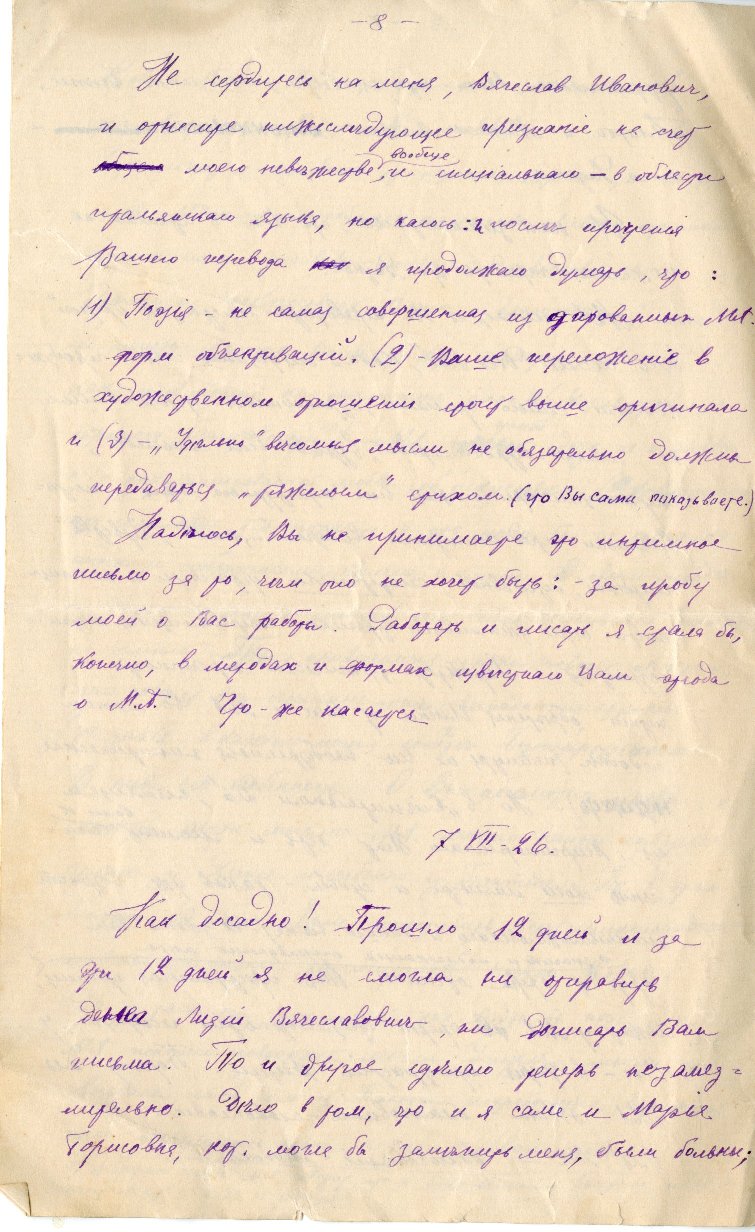 — 8 —
Не сердитесь на меня, Вячеслав Иванович,
и отнесите нижеслѣдующее признаніе на счет
моего невѣжества, и вообще спеціальнаго — в области
итальянскаго языка, но каюсь: и послѣ прочтенія
Вашего перевода я продолжаю думать, что:
(1) Поэзія — не самая совершенная из дарованных М.А.
форм объективаціи. (2) — Ваше переложеніе в
художественном отношеніи стоит выше оригинала
и (3) — „Удѣльно" вѣсомыя мысли не обязательно должны
передаваться „тяжелым" стихом. (что Вы сами показываете.)
Надѣюсь, Вы не принимаете это интимное
письмо за то, чѣм оно не хочет быть: — за пробу
моей о Вас работы. Работать и писать я стала бы,
конечно, в методах и формах извѣстнаго Вам этюда
о М.А. Что-же касается
7 VII — 26.
Как досадно! Прошло 12 дней и за
эти 12 дней я не смогла ни отправить
денег Лидіи Вячеславовнѣ, ни дописать Вам
письма. То и другое сдѣлаю теперь незамед=
лительно. Дѣло в том, что и я сама и Марья
Борисовна, кот. могла бы замѣнить меня, были больны;